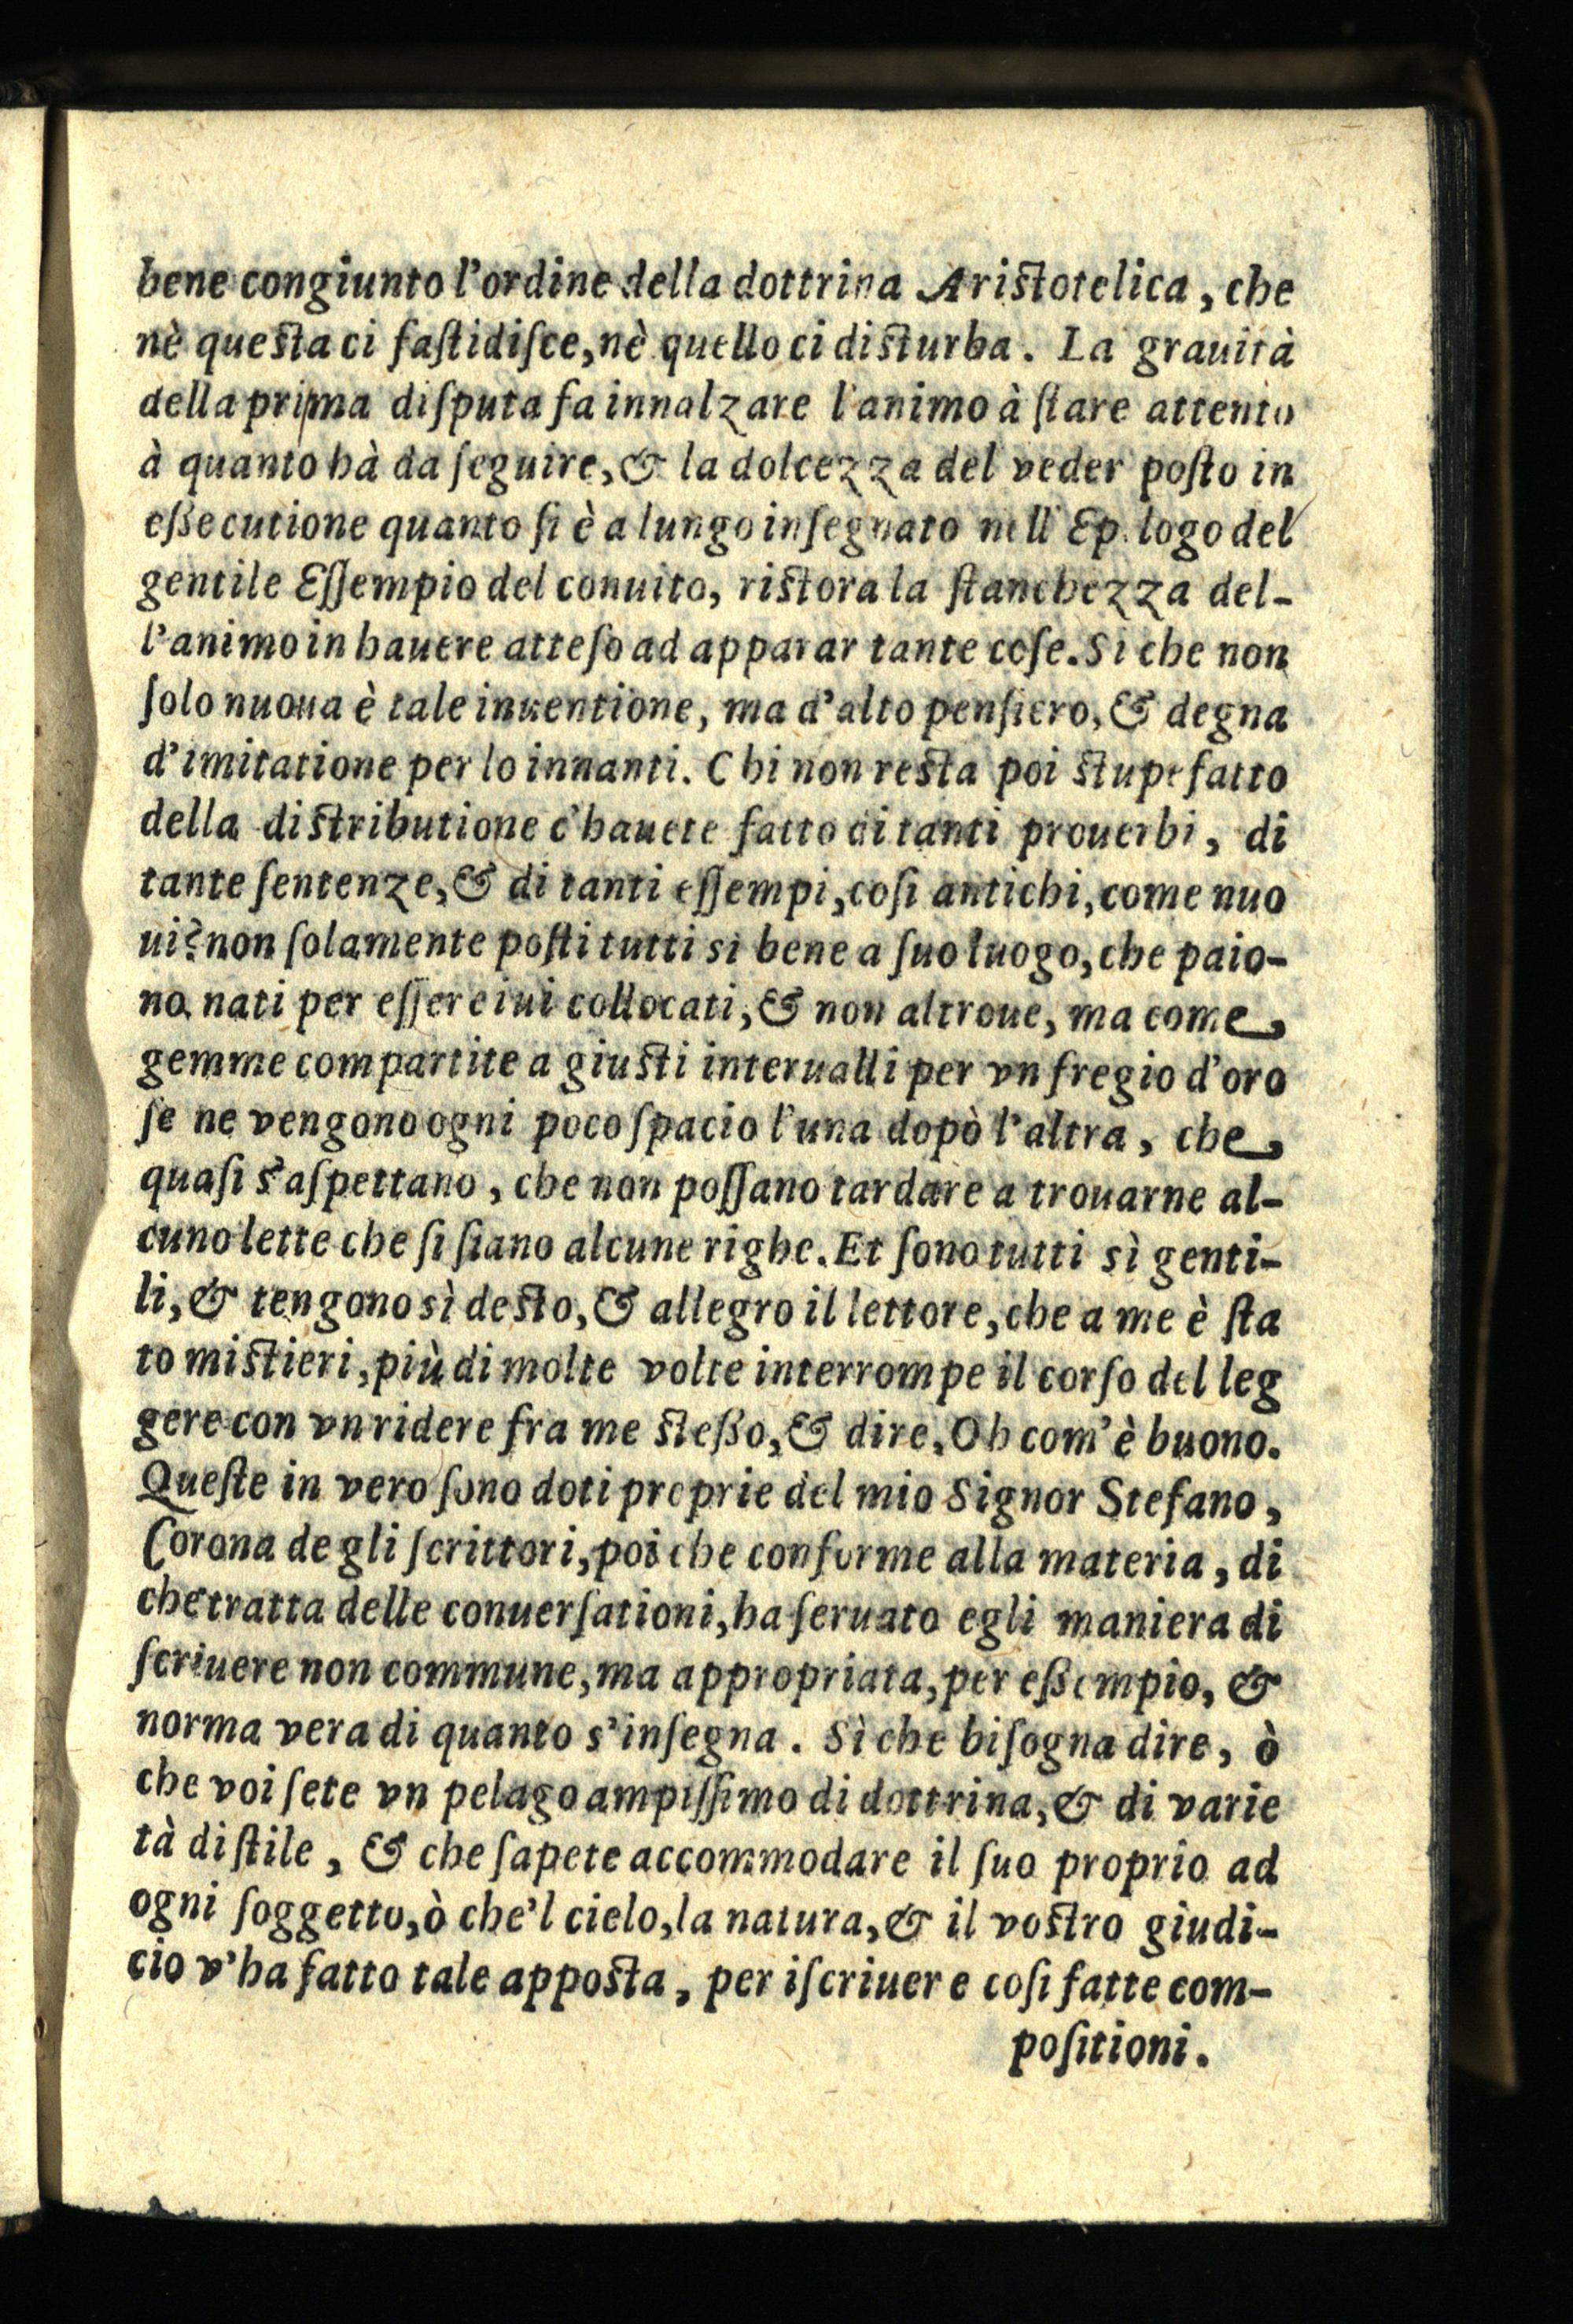 bene congiunto l'ordine della dottrina Aristotelica, che
nè questa ci fastidiſce, nè quello ci disturba. La grauità
della prima diſputa fa innalzare l'animo à ſtare attento
à quanto hà da ſeguire, & la dolcezza del veder poſto in
eſſecutione quanto ſi è a lungo inſegnato nell'Ep.logo del
gentile Eſſempio del conuito, ristora la ſtanchezza del-
l'animo in hauere atteſo ad apparar tante coſe. Si che non
ſolo nuoua è tale inuentione, ma d'alto penſiero, & degna
d'imitatione per lo innanti. Chi non resta poi stupefatto
della distributione c'hauete fatto di tanti prouerbi, di
tante ſentenze, & di tanti eſſempi, coſi antichi, come nuo
ui? non ſolamente poſti tutti si bene a ſuo luogo, che paio-
no nati per eſſere iui collocati, & non altroue, ma come
gemme compartite a giusti interualli per vn fregio d'oro
ſe ne vengono ogni poco ſpacio l'una dopò l'altra, che
quaſi s'aſpettano, che non poſſano tardare a trouarne al-
cuno lette che ſi ſiano alcune righe. Et ſono tutti sì genti-
li, & tengono sì desto, & allegro il lettore, che a me è ſta
to mistieri, più di molte volte interrompe il corſo del leg
gere con vn ridere fra me steſſo, & dire, Oh com'è buono.
Queſte in vero ſono doti proprie del mio Signor Stefano,
Corona de gli ſcrittori, poi che conforme alla materia, di
che tratta delle conuerſationi, ha ſeruato egli maniera di
ſcriuere non commune, ma appropriata, per eſſempio, &
norma vera di quanto s'inſegna. Sì che biſogna dire, ò
che voi ſete vn pelago ampiſſimo di dottrina, & di varie
tà di ſtile, & che ſapete accommodare il ſuo proprio ad
ogni ſoggetto, ò che'l cielo, la natura, & il vostro giudi-
cio v'ha fatto tale apposta, per iſcriuere coſi fatte com-
poſitioni.